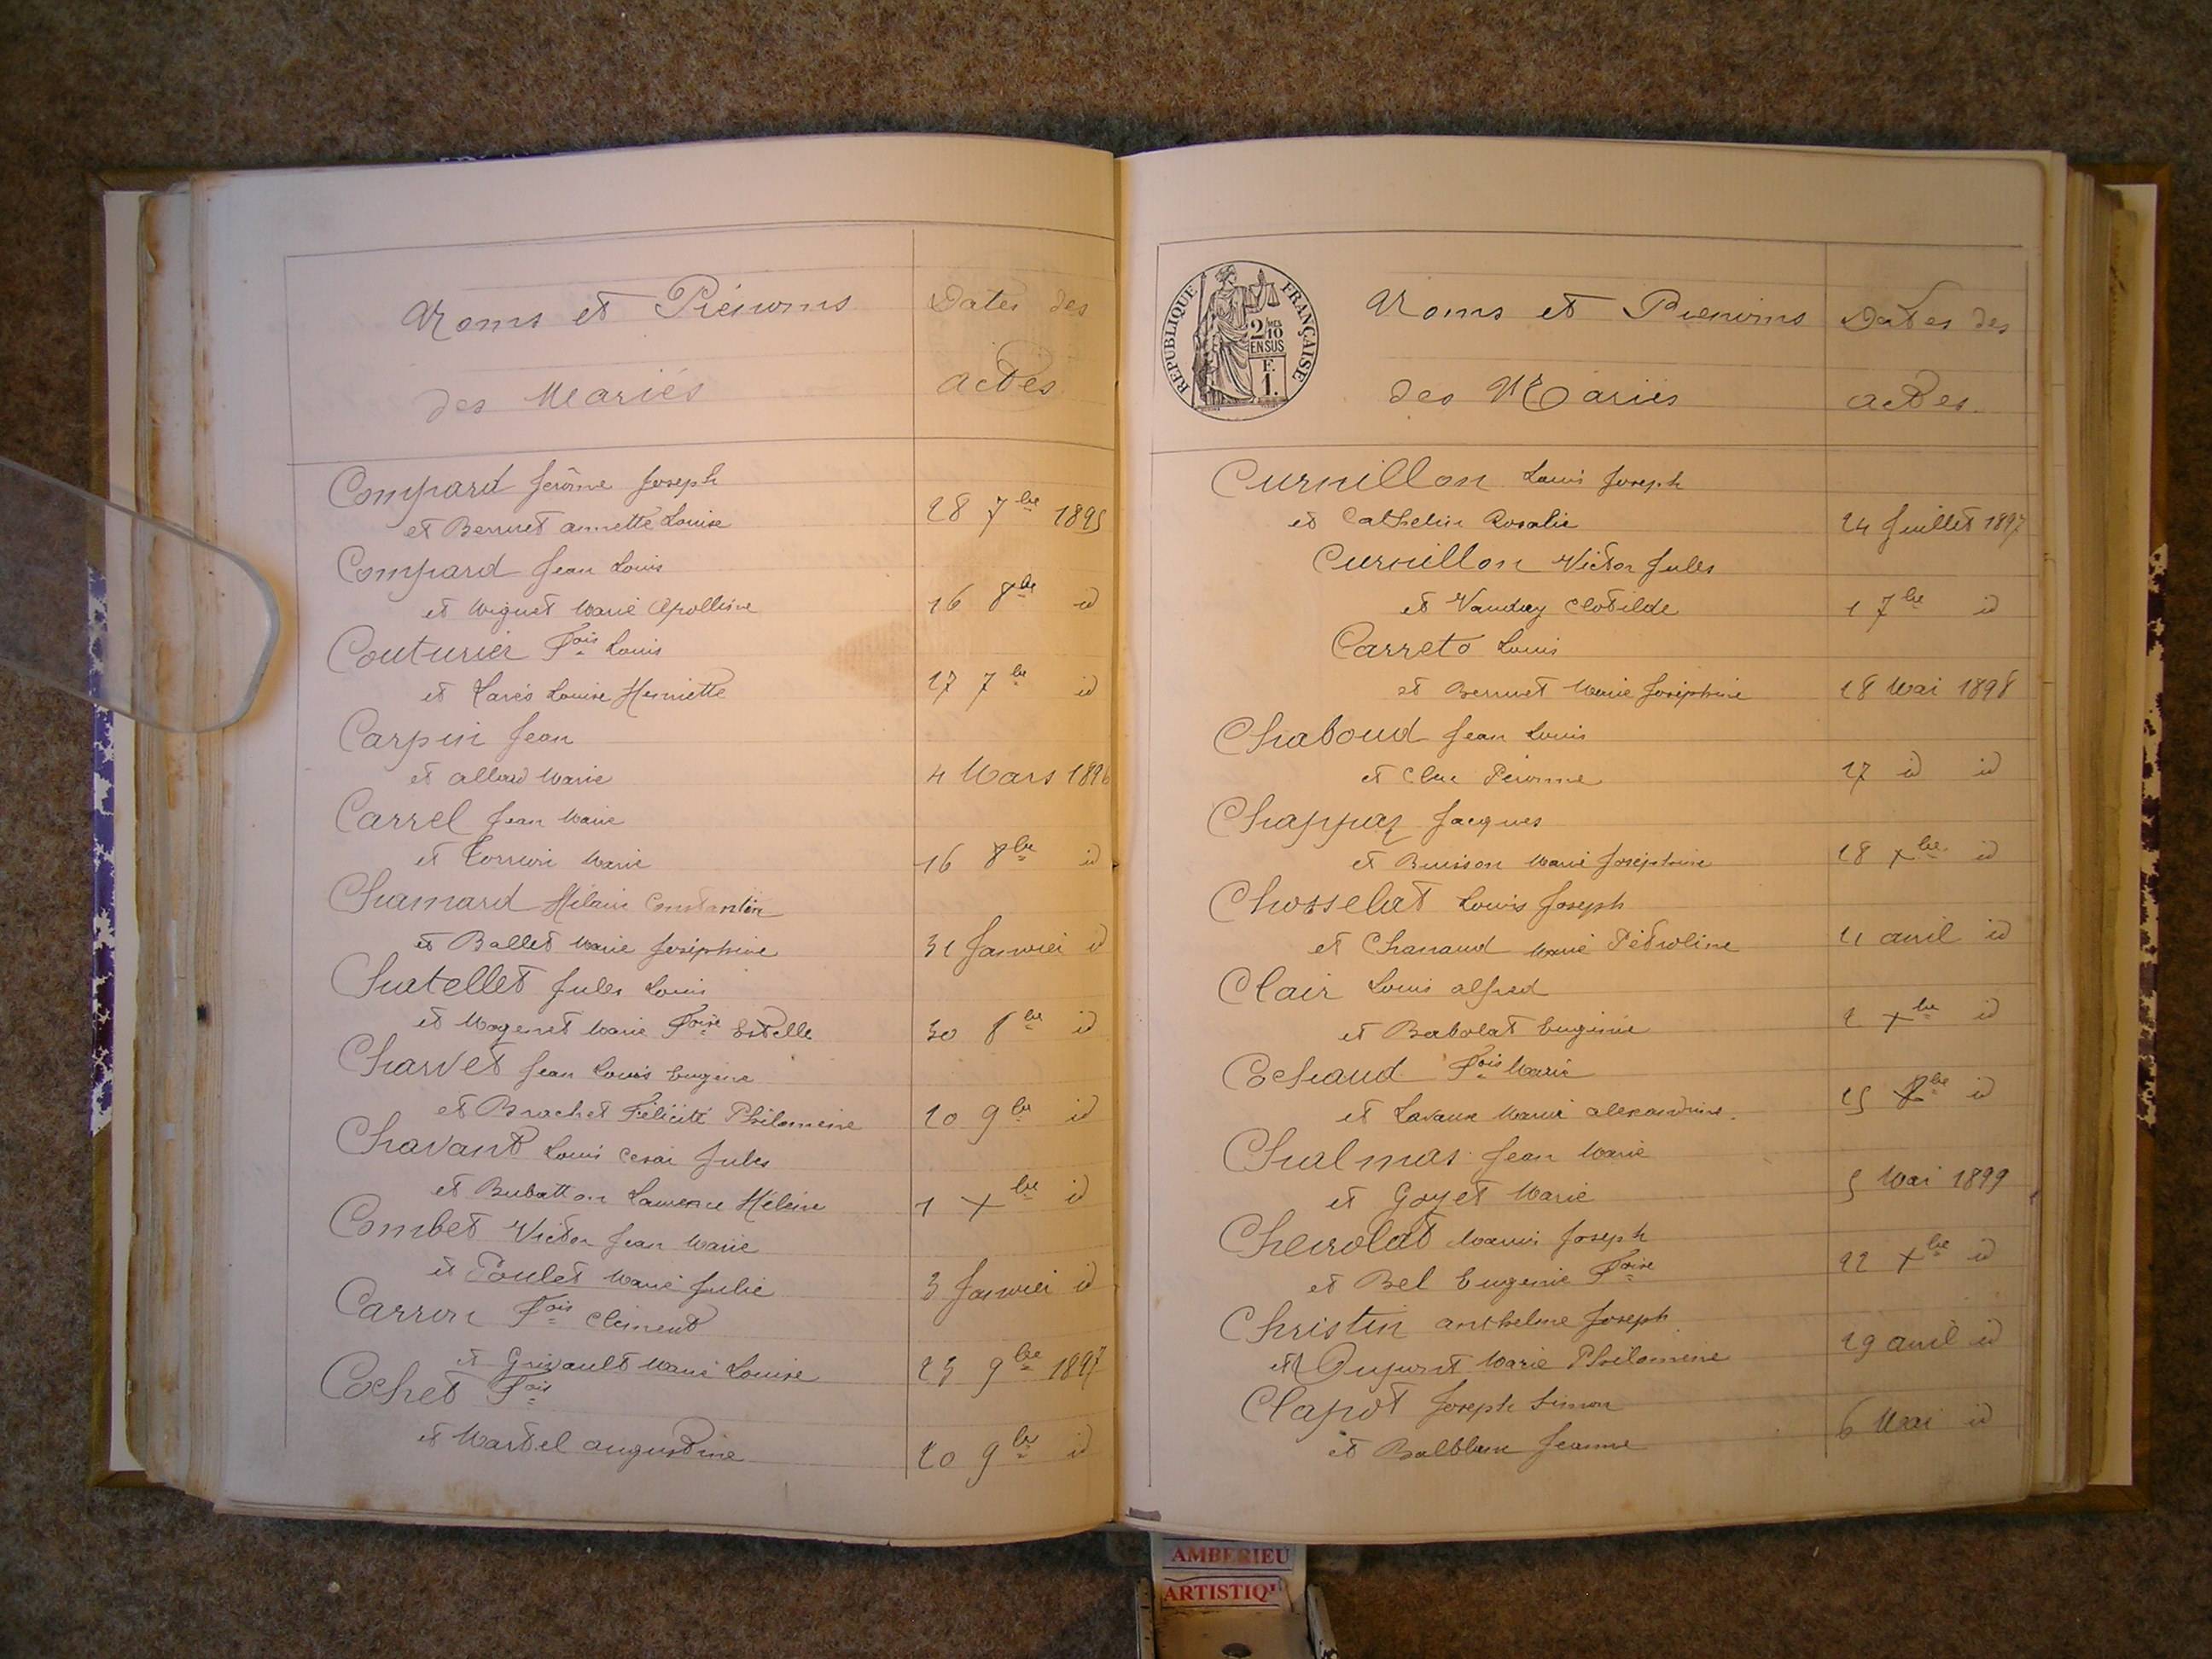 Noms et Prénoms
Dates des
des Mariés
actes
Compard Jérôme Joseph
et Berruet annette Louise 28 7bre 1895
Compard Jean Louis
et Marie Apolline 16 8bre id
Couturier Fois Louis
et Larès Louise Henriette 17 7bre id
Carpin Jean
et allard Marie 4 Mars 1896
Carrel Jean Marie
et Marie 16 8bre id
Chamard Hilaire Constantin
et Ballet Marie Joséphine 31 Janvier id
Chatellet Jules Louis
et Magenet Marie Foise Estelle 30 8bre id
Charvet Jean Louis Eugène
et Brachet Félicité Philomène 20 9bre id
Chavant Louis César Jules
et Bubatton Laurence Hélène 1 Xbre id
Combet Victor Jean Marie
et Poulet Marie Julie 3 Janvier id
Carron Fois Clément
et Grivault Marie Louise 23 9bre 1897
Cochet Fois
et Martel augustine 20 9bre id
REPUBLIQUE FRANÇAISE
2/10
EN SUS
F.
1.
Noms et Prénoms
Dates des
des Mariés
actes
Curnillon Louis Joseph
et Cathelin Rosalie 24 Juillet 1897
Curnillon Victor Jules
et Vauday Clotilde 1 7bre id
Carreto Louis
et Berruet Marie Joséphine 28 Mai 1898
Chaboud Jean Louis
et Cluc Péronne 17 id id
Chappaz Jacques
et Buisson Marie Joséphine 28 Xbre id
Chosselat Louis Joseph
et Chanaud Marie Pétroline 21 avril id
Clair Louis alfred
et Babolat Eugénie 2 Xbre id
Cochaud Fois Marie
et Lavaux Marie alexandrine. 25 id
Chalmas Jean Marie
et Goyet Marie 5 Mai 1899
Chevrolat Marius Joseph
et Bel Eugenie Foise 22 Xbre id
Christin anthelme Joseph
et Dupuret Marie Philomène 29 avril id
Clapot Joseph Simon
et Balblanc Jeanne 6 Mai id
AMBERIEU
ARTISTIQ